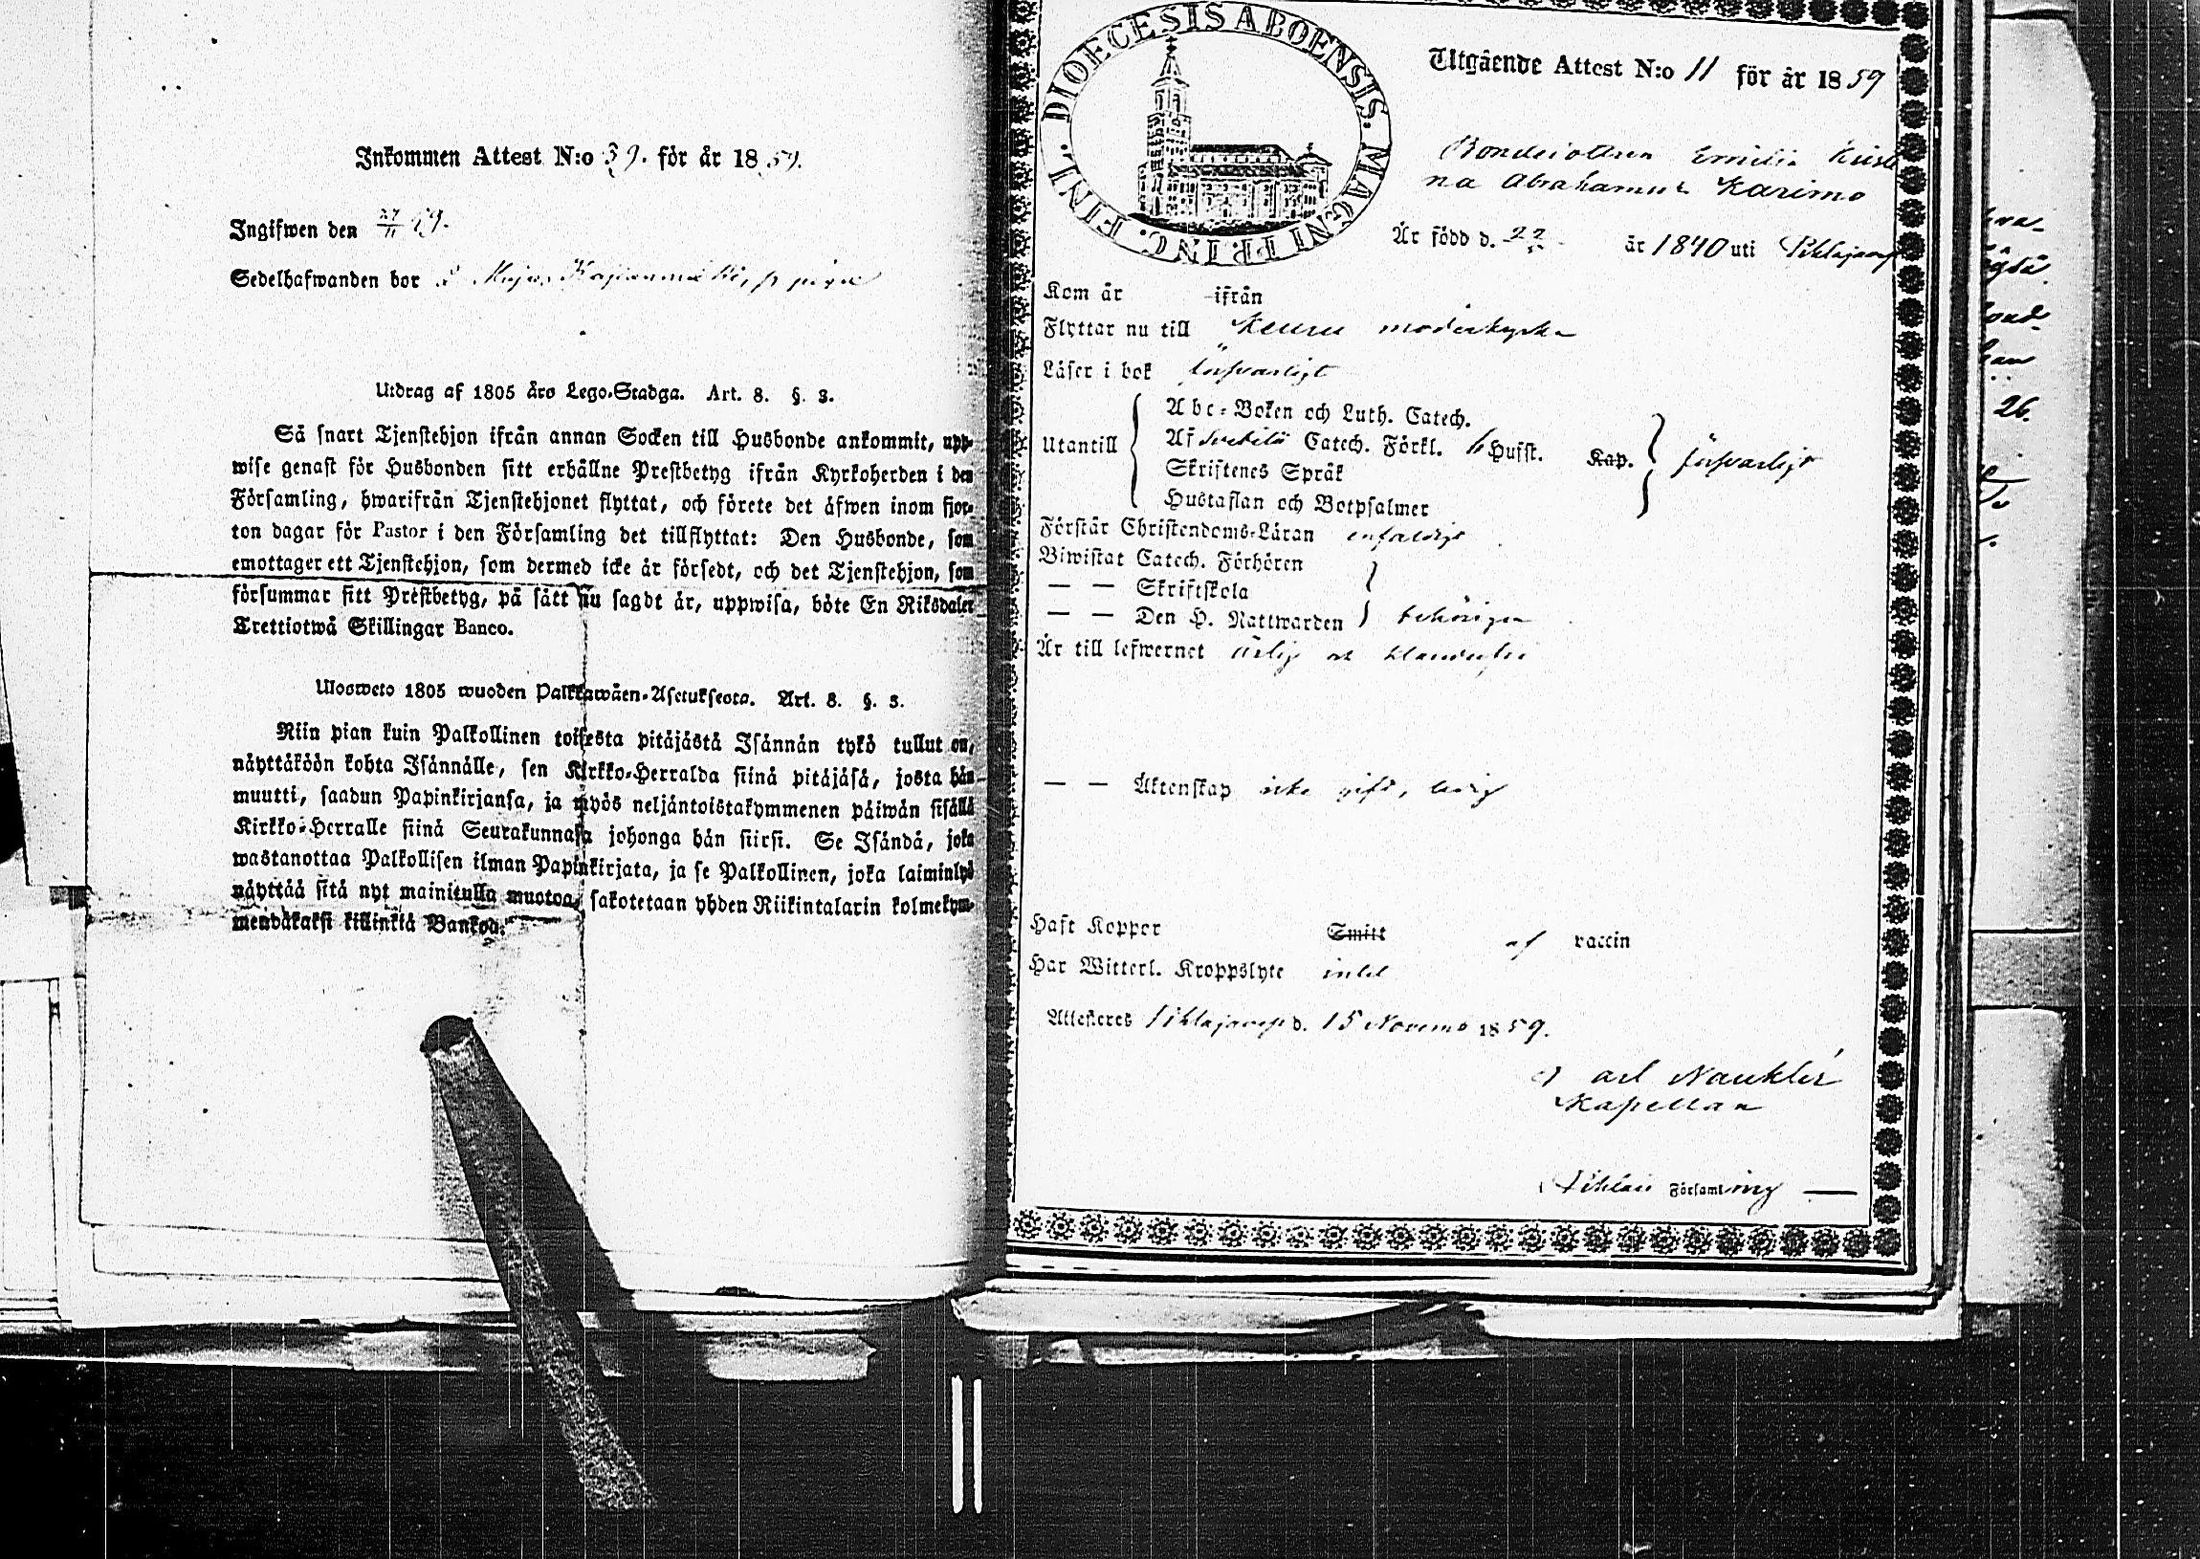 Inkommen Attest N:o 39. för år 1859.
Ingifwen den 27/11 59.
Sedelhafwanden bor
Utdrag af 1805 års Lego-Stadga. Art. 8. §. 3.
Så snart Tjenstehjon ifrån annan Socken till Husbonde ankommit, upp-
wise genast för Husbonden sitt erhållne Prestbetyg ifrån Kyrkoherden i den
Församling, hwarifrån Tjenstehjonet flyttat, och förete det äfwen inom fjor-
ton dagar för Pastor i den Församling det tillflyttat: Den Husbonde, som
emottager ett Tjenstehjon, som dermed icke är försedt, och det Tjenstehjon, som
försummar sitt Prestbetyg, på sätt nu sagdt är, uppwisa, böte En Riksdaler
Trettiotwå Skillingar Banco.
Ulosweto 1805 wuoden Palkkawäen-Asetuksesta. Art. 8. §. 3.
Niin pian kuin Palkollinen toisesta pitäjästä Isännän tykö tullut on,
näyttäköön kohta Isännälle, sen Kirkko-Herralda siinä pitäjäsä, josta hän
muutti, saadun Papinkirjansa, ja myös neljäntoistakymmenen päiwän sisällä
Kirkko-Herralle siinä Seurakunnasa johonga hän siirsi. Se Isändä, joka
wastanottaa Palkollisen ilman Papinkirjata, ja se Palkollinen, joka laiminlyö
näyttää sitä nyt mainitulla muotoa, sakotetaan yhden Riikintalarin kolmekym-
mendäkaksi killinkiä Bankoa.
DIOECESIS ABOENSIS. MAGNI PRINC. FINL.
Utgående Attest N:o 11 för år 1859
Bondedottren Emilia Kristi
na Abrahamsd. Karimo
Är född d. 22 år 1840 uti Pihlajavesi
Kom år ifrån
Flyttar nu till Keuru moderkyrka
Läser i bok försvarligt
Utantill
Abc-Boken och Luth. Catech.
Af Svebilii Catech. Förkl. 6 Hufst. Kap. försvarligt
Skriftenes Språk
Hustaflan och Botpsalmer
Förstår Christendoms-Läran enfaldigt
Biwistat Catech. Förhören
— — Skriftskola
— — Den H. Nattwarden behörigen
Är till lefwernet ärlig och klanderfri
— — Äktenskap icke gift, ledig
Haft Koppor Smitt af vaccin
Har Witterl. Kroppslyte intet
Attesteres Pihlajavesi d. 15 Novemb 1859.
Carl Nauklér
Kapellan
Församling —
26.